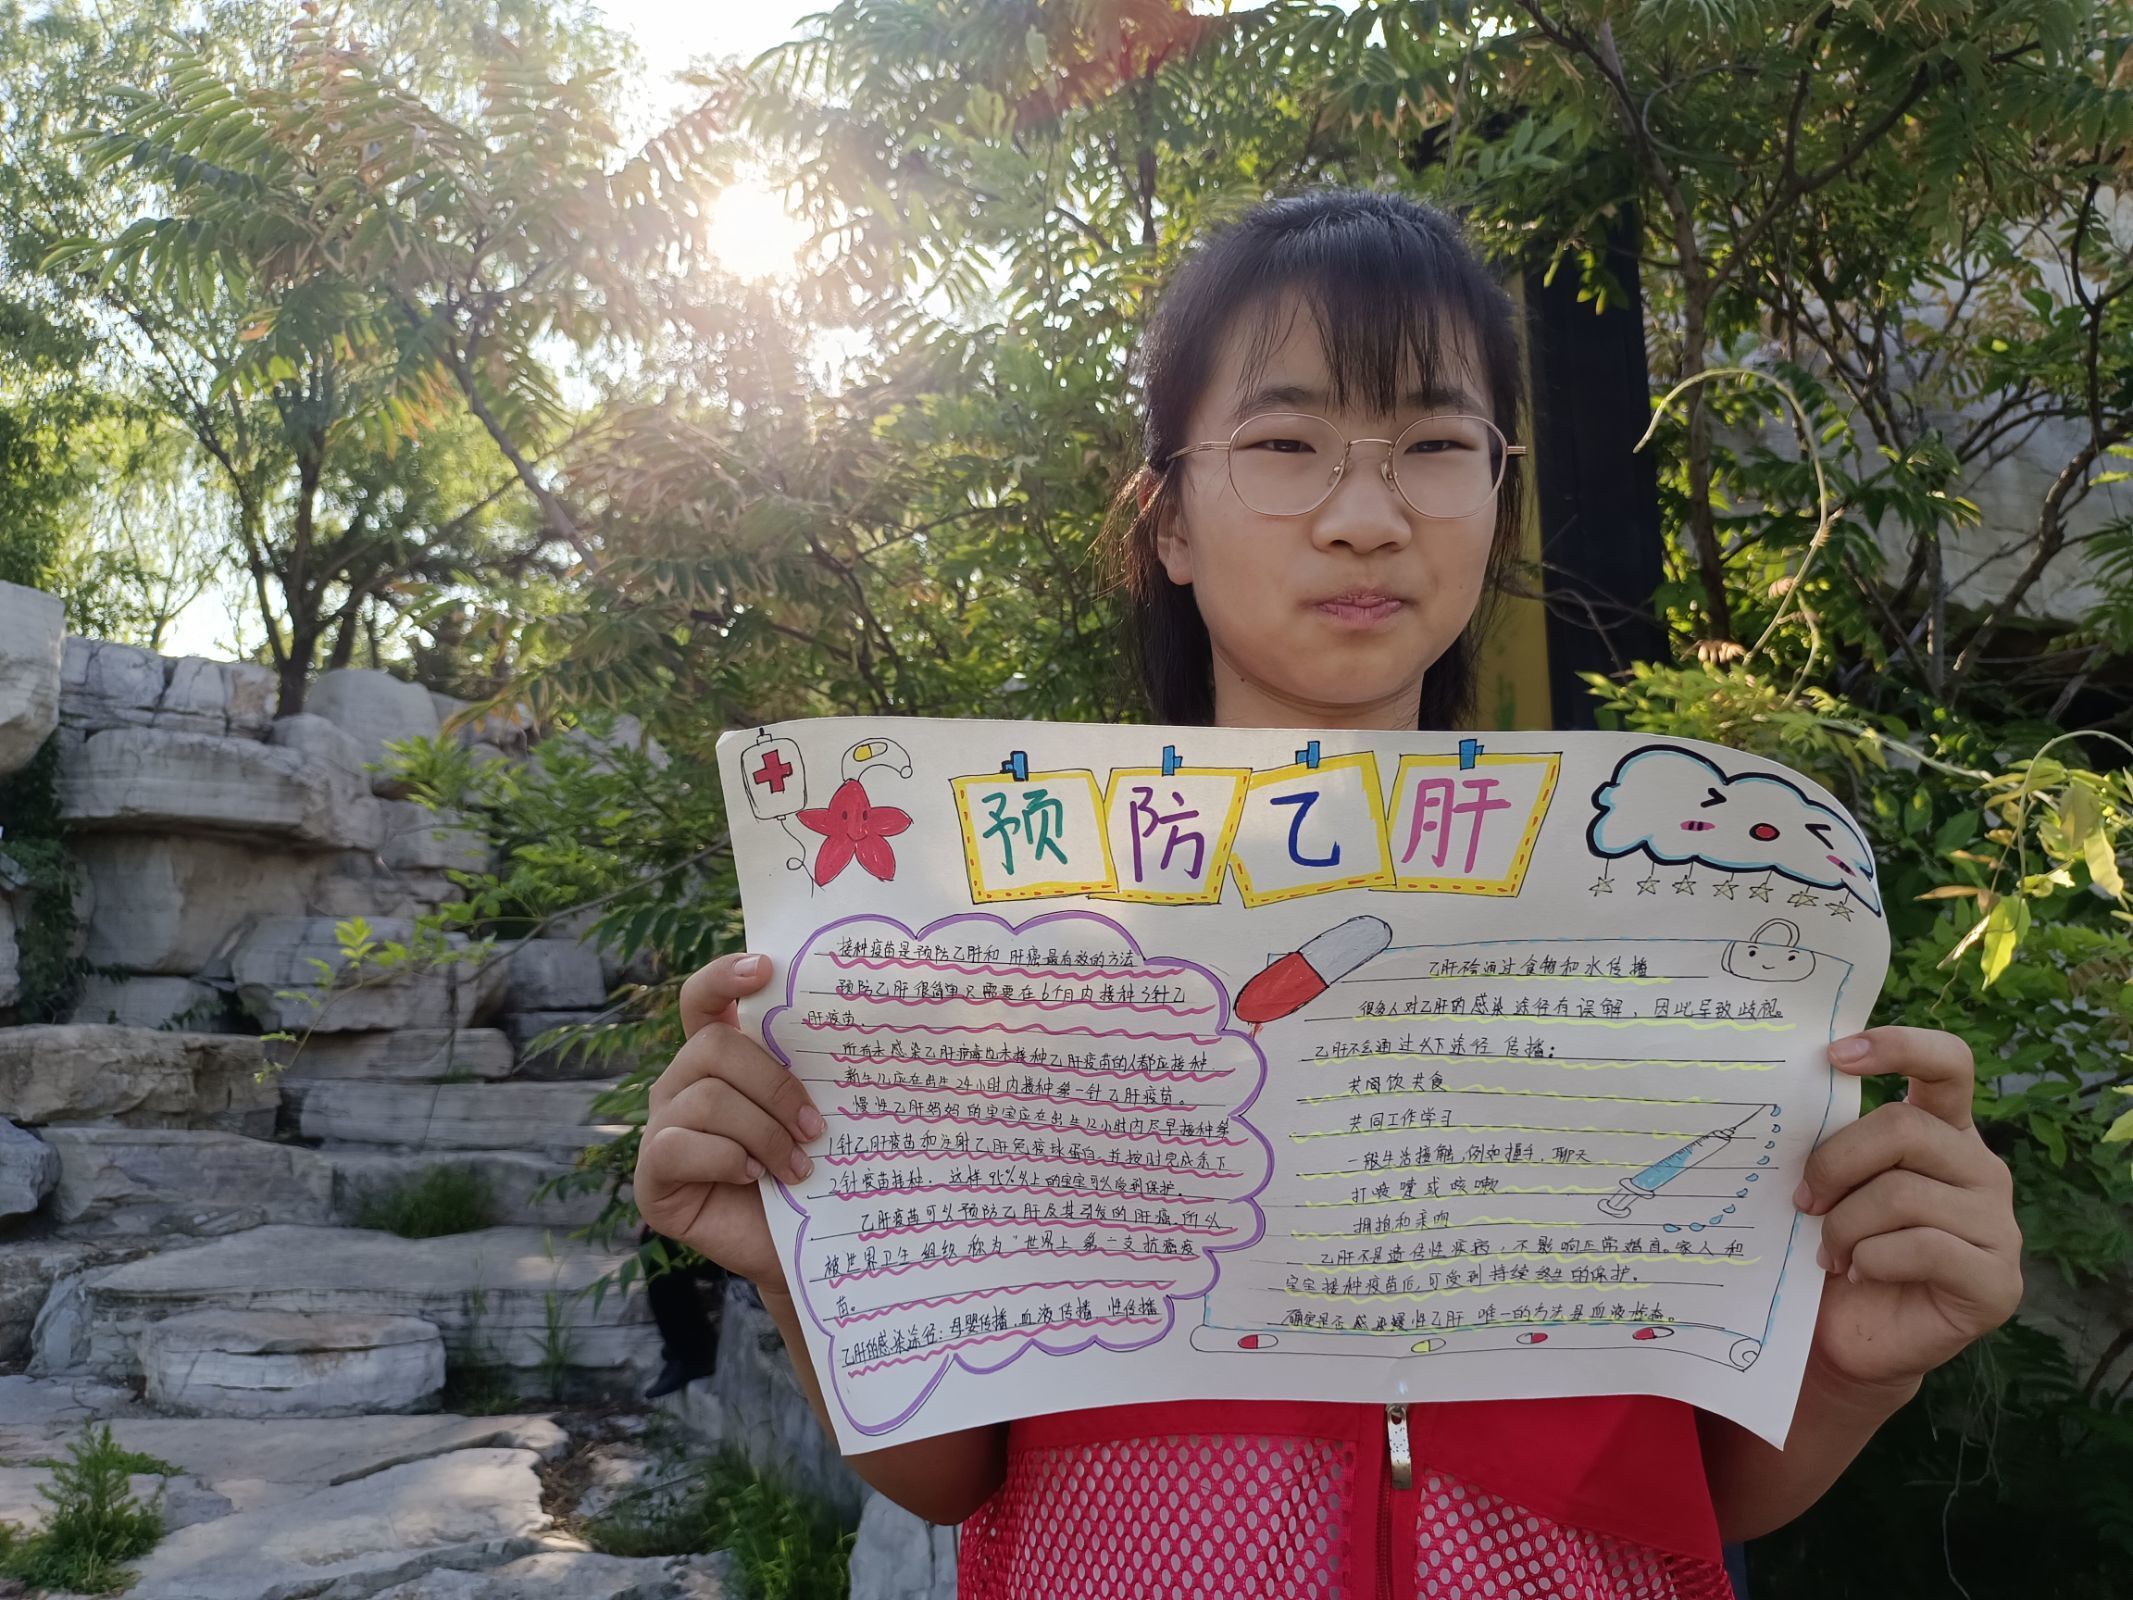 预防乙肝
接种疫苗是预防乙肝和肝癌最有效的方法
预防乙肝很简单只需要在6个月内接种3针乙
肝疫苗.
所有未感染乙肝病毒也未接种乙肝疫苗的人都应接种.
新生儿应在出生24小时内接种第一针乙肝疫苗。
慢性乙肝妈妈的宝宝应在出生12小时内尽早接种第
1针乙肝疫苗和注射乙肝免疫球蛋白,并按时完成余下
2针疫苗接种.这样95%以上的宝宝可以受到保护.
乙肝疫苗可以预防乙肝及其引发的肝癌.所以
被世界卫生组织称为“世界上第一支抗癌疫
苗。
乙肝的感染途径:母婴传播.血液传播.性传播
乙肝不会通过食物和水传播
很多人对乙肝的感染途径有误解,因此导致歧视。
乙肝不会通过以下途径传播:
共同饮共食
共同工作学习
一般生活接触,例如握手.聊天
打喷嚏或咳嗽
拥抱和亲吻
乙肝不是遗传性疾病,不影响正常婚育。家人和
宝宝接种疫苗后,可受到持续终生的保护.
确定是否感染慢性乙肝唯一的方法是血液检查。